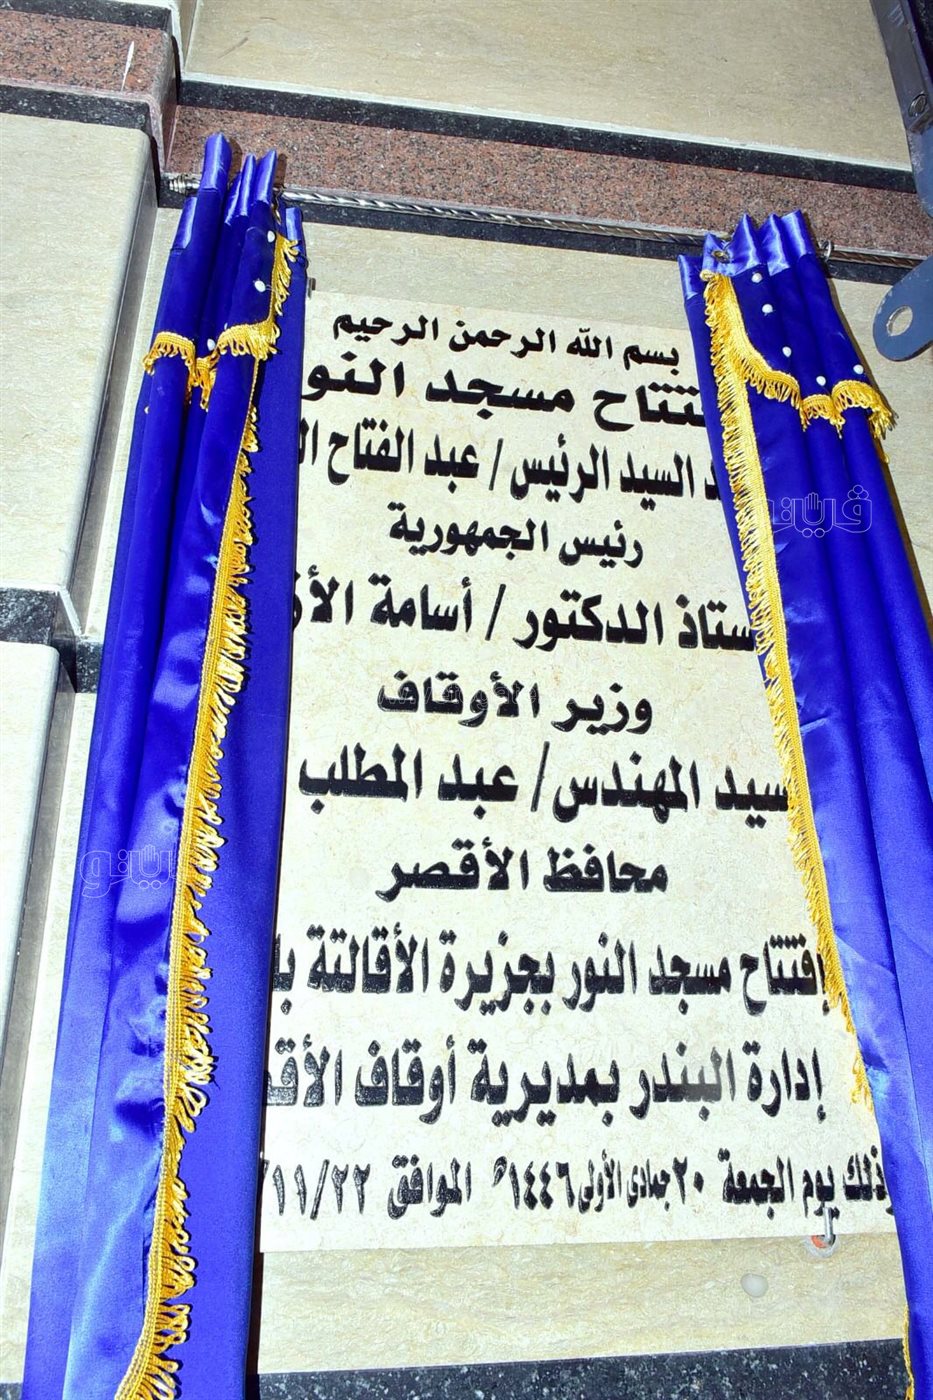 بسم الله الرحمن الرحيم
مسجد
السيد الرئيس / عبد الفتاح
رئيس الجمهورية
الدكتور / أسامة
وزير الأوقاف
المهندس / عبد المطلب
محافظ الأقصر
إفتتاح مسجد النور بجزيرة الأقالتة
إدارة البندر بمديرية أوقاف
وذلك يوم الجمعة ٢٠ جمادى الأولى ١٤٤٦ه الموافق ١١/٢٢/
فيتو
فيتو